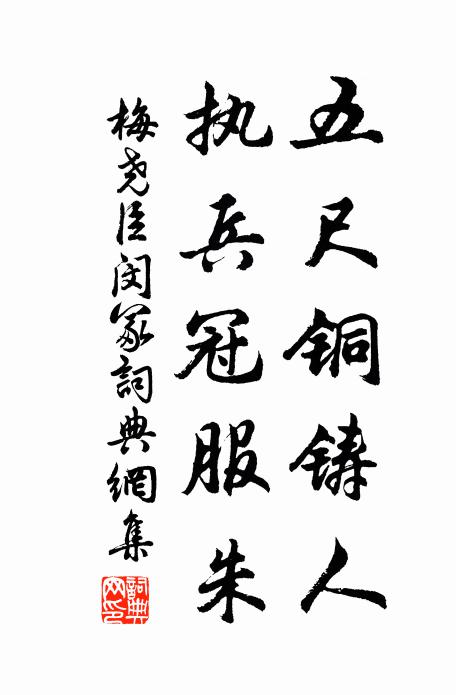 五尺铜铸人
执兵冠服朱
梅尧臣闵冢詞典網集
詞典网印